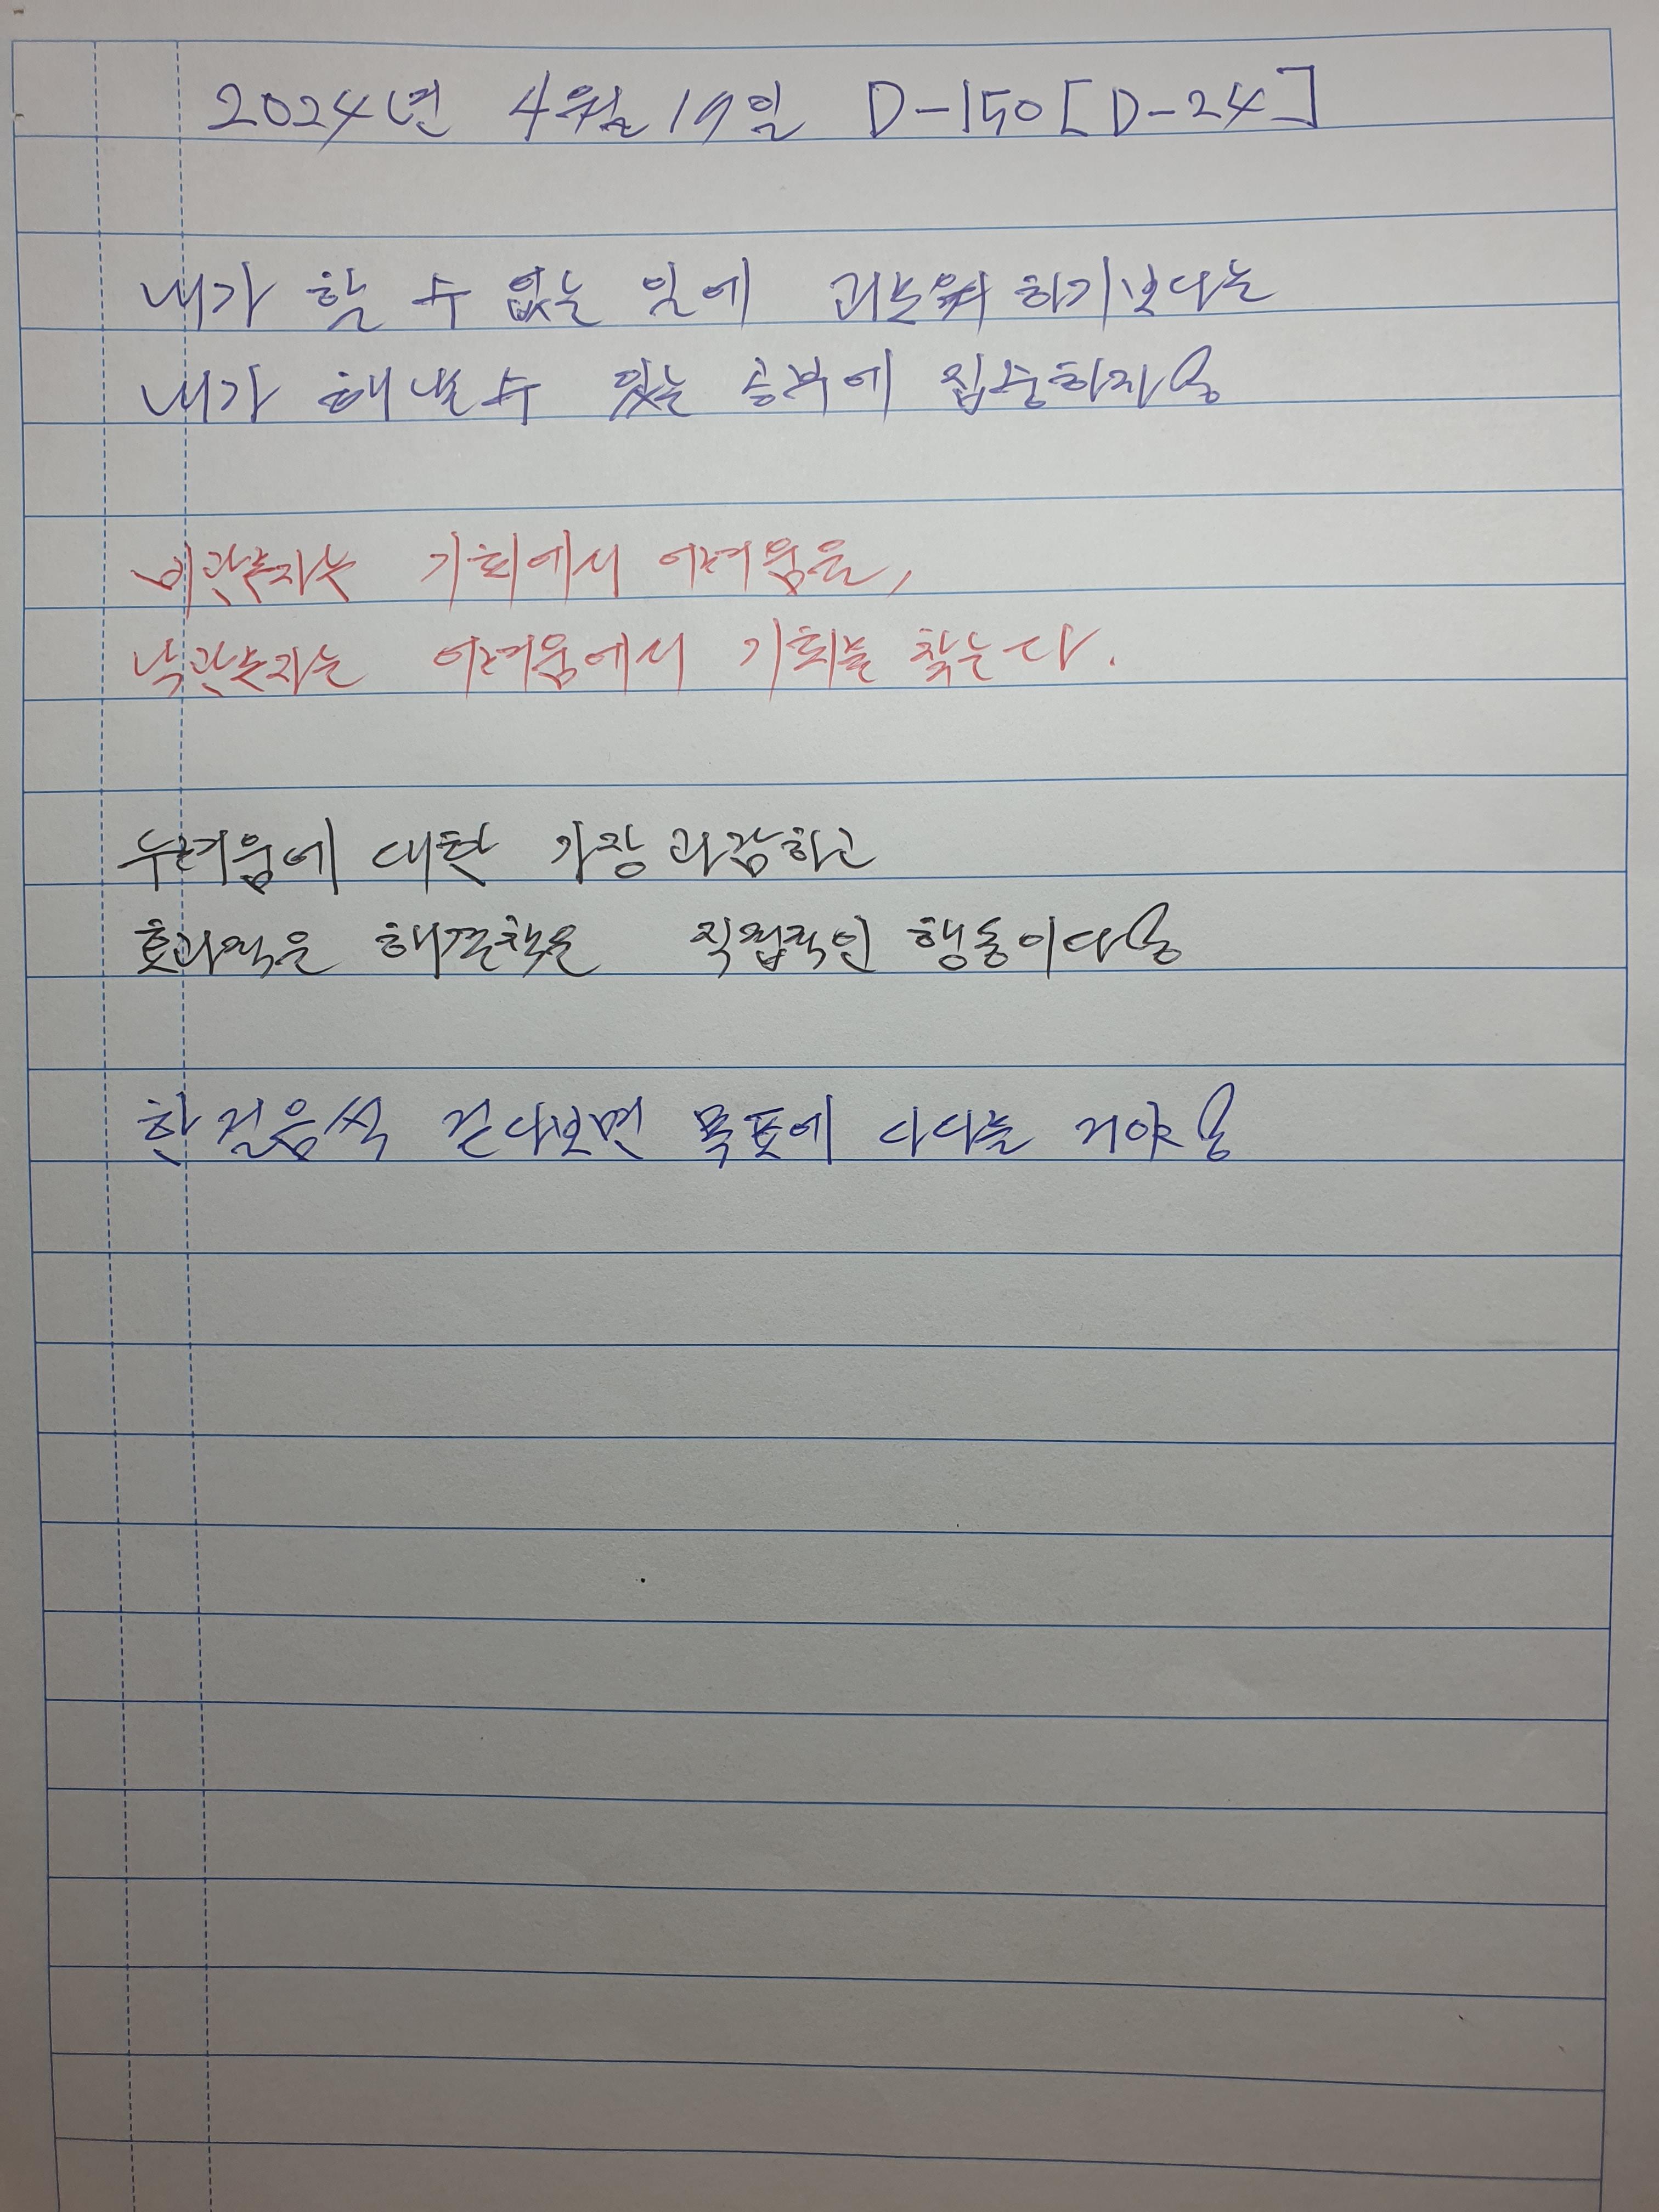 2024년 4월 19일 D-150 [D-24]
내가 할 수 없는 일에 하기보다는
내가 해낼 수 있는 승부에 집중하자!
비관론자는 기회에서 어려움을,
낙관론자는 어려움에서 기회를 찾는다.
두려움에 대한 가장 과감하고
효과적은 해결책은 직접적인 행동이다!
한 걸음씩 걷다보면 목표에 다다를 거야!